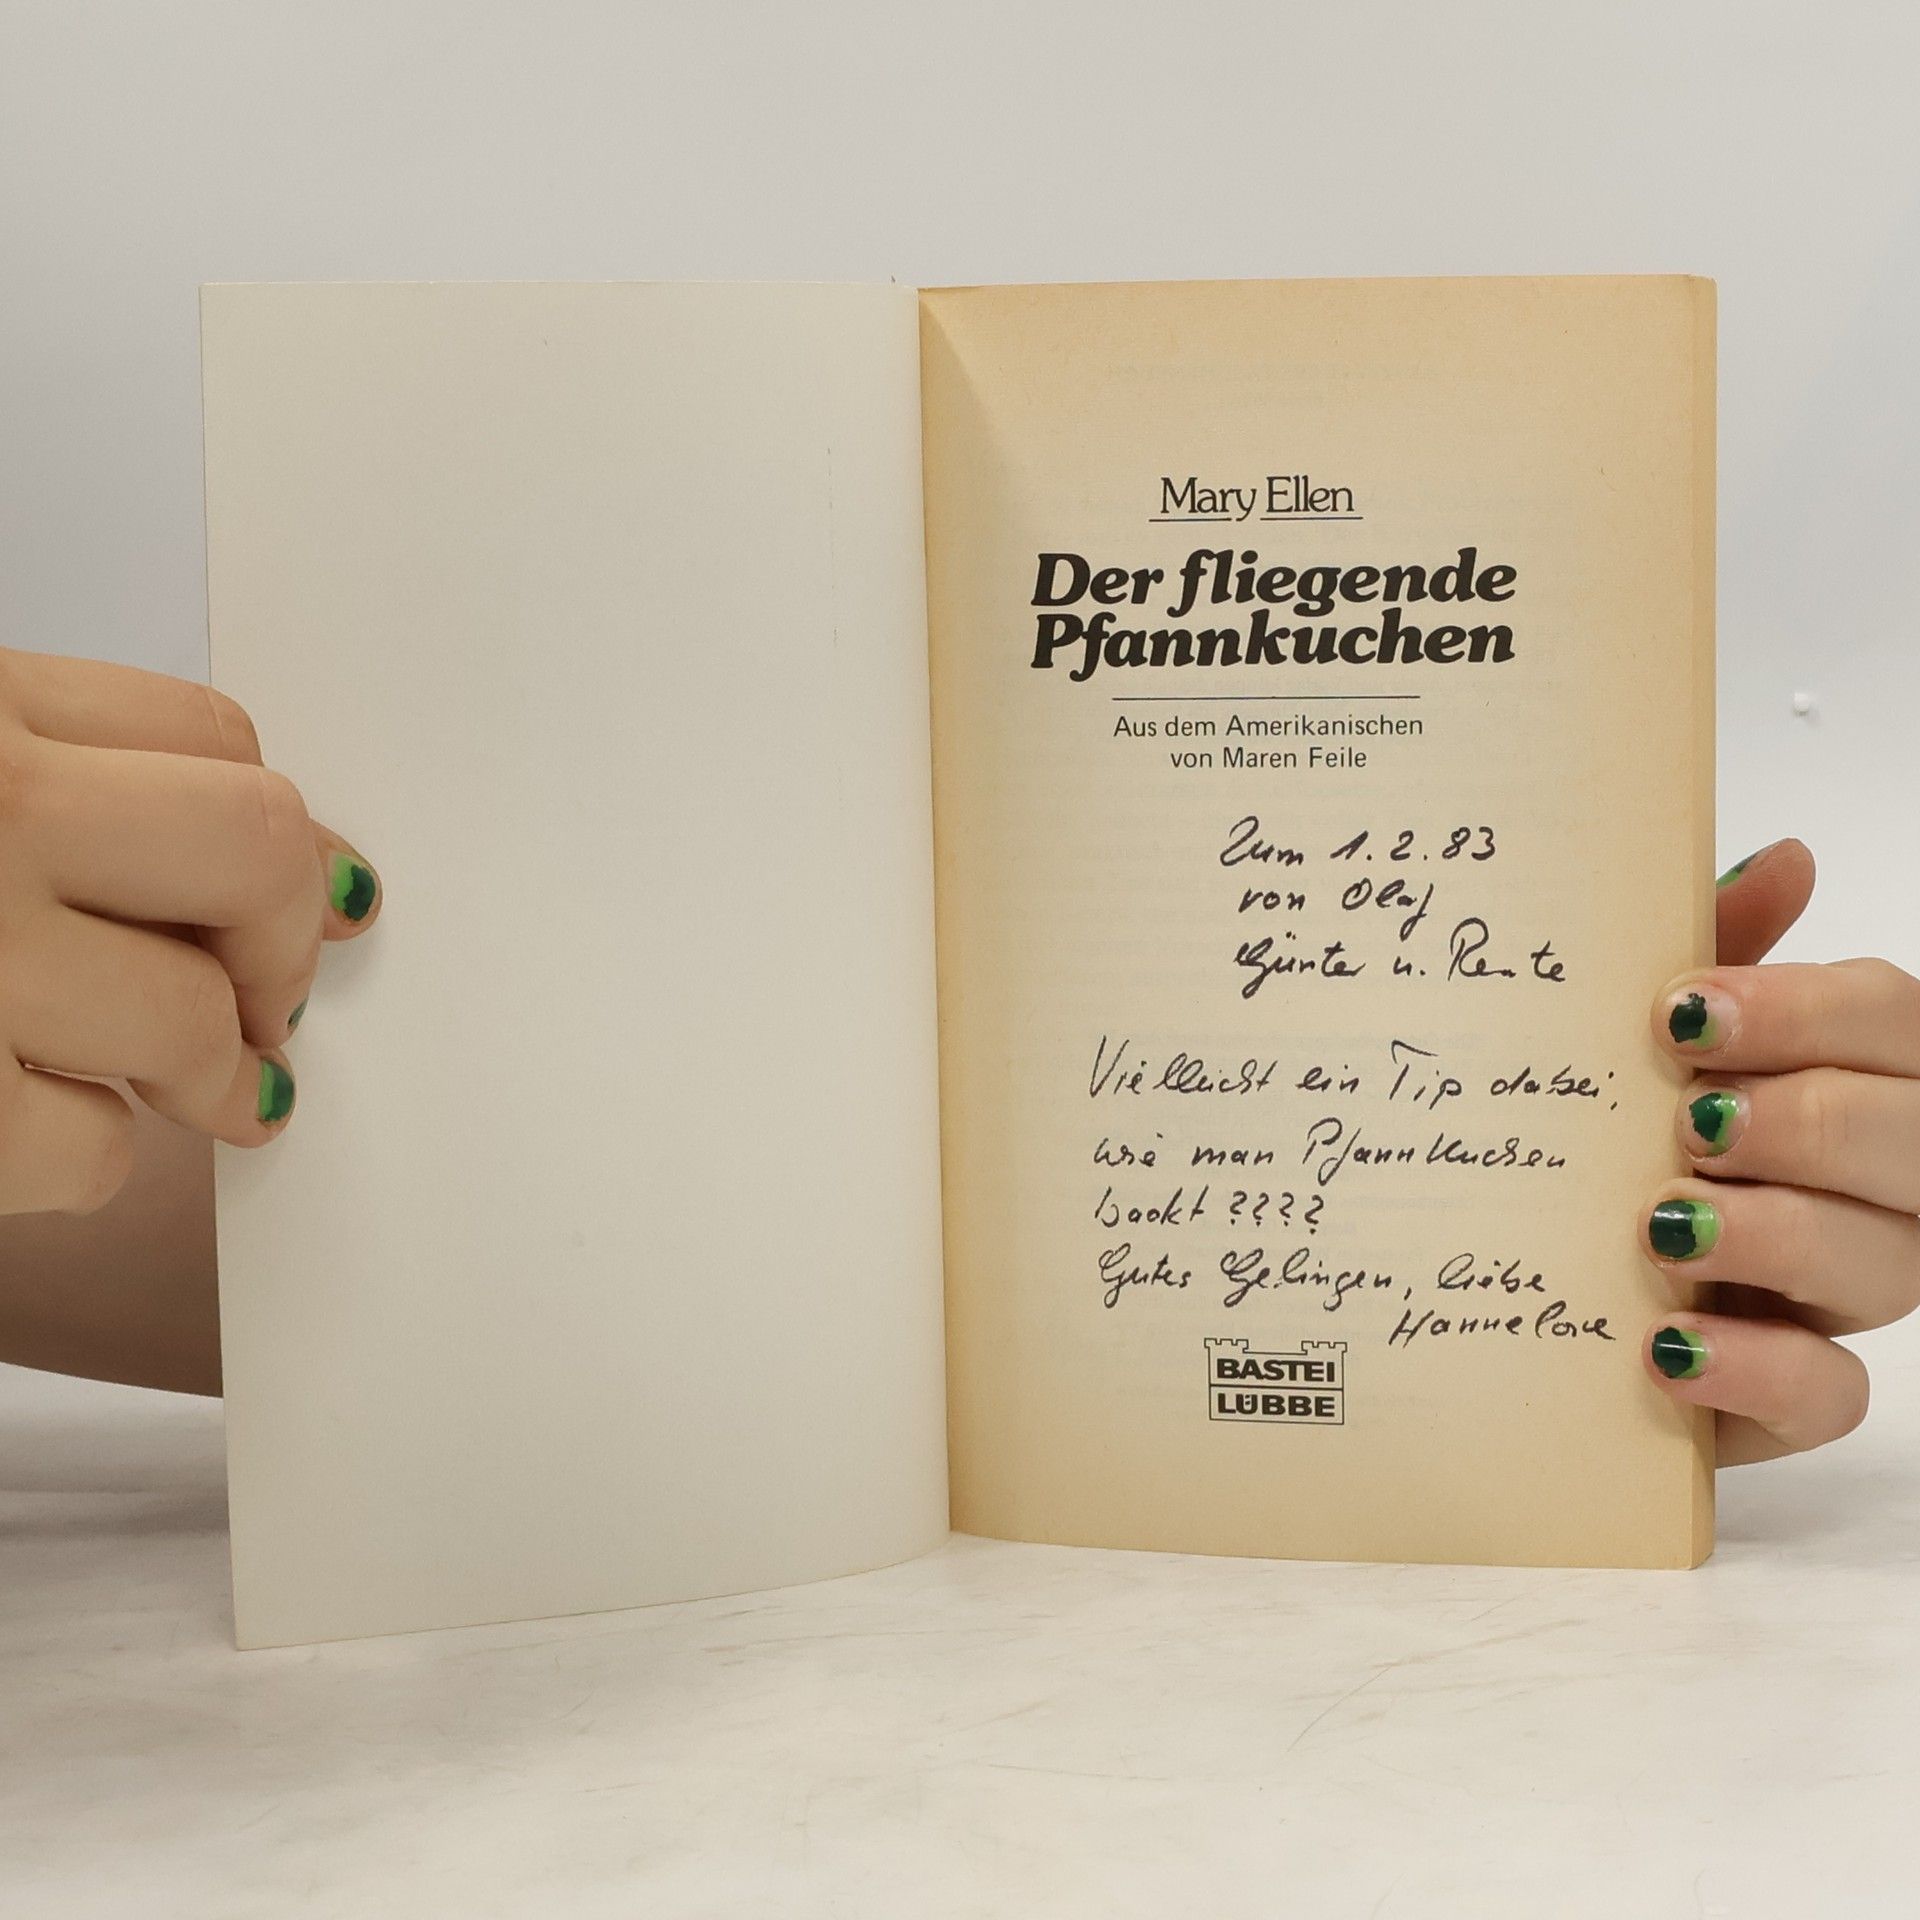 Mary Ellen
Der fliegende
Pfannkuchen
Aus dem Amerikanischen
von Maren Feile
Zum 1.2.83
von Olaf
Günter u. Renate
Vielleicht ein Tip dabei,
wie man Pfannkuchen
backt ????
Gutes Gelingen, liebe
Hannelore
BASTEI
LÜBBE